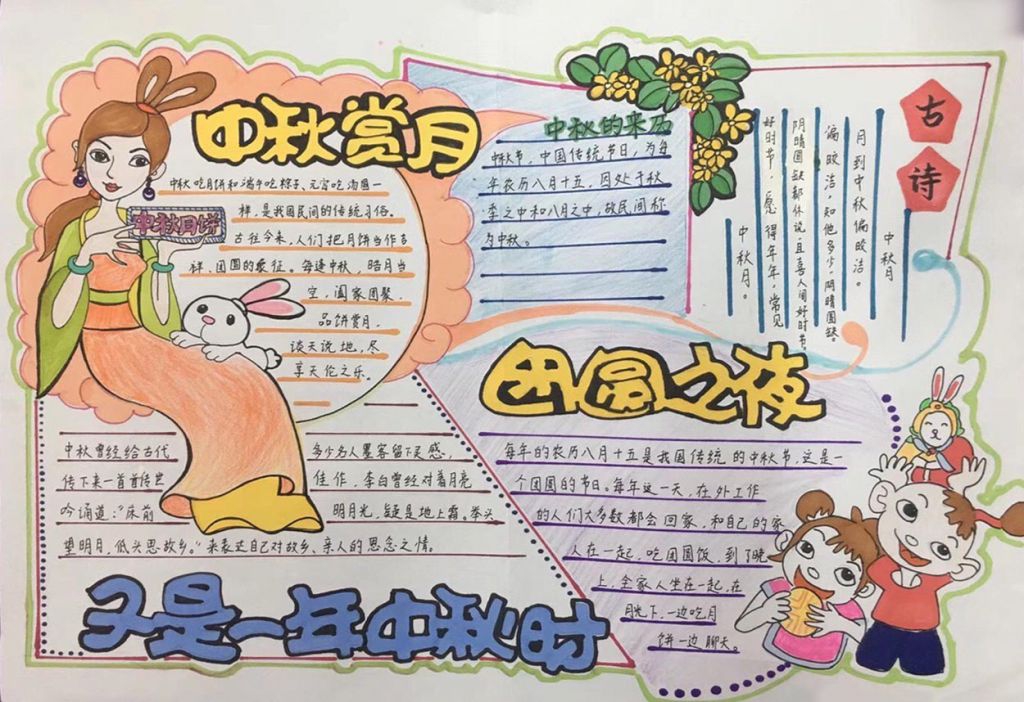 中秋赏月
中秋吃月饼和端午吃粽子、元宵吃汤圆一
样，是我国民间的传统习俗。
古往今来，人们把月饼当作吉
祥、团圆的象征。每逢中秋，皓月当
空，阖家团聚，
品饼赏月，
谈天说地，尽
享天伦之乐。
中秋月饼
中秋的来历
中秋节，中国传统节日，为每
年农历八月十五，因处于秋
季之中和八月之中，故民间称
为中秋。
古诗
中秋月
月到中秋偏皎洁。
偏皎洁，知他多少，阴晴圆缺。
阴晴圆缺都休说，且喜人间好时节。
好时节，愿得年年，常见
中秋月。
中秋曾经给古代多少名人墨客留下灵感，
传下来一首首传世佳作，李白曾经对着月亮
吟诵道：“床前明月光，疑是地上霜。举头
望明月，低头思故乡。”来表达自己对故乡、亲人的思念之情。
又是一年中秋时
团圆之夜
每年的农历八月十五是我国传统的中秋节，这是一
个团圆的节日。每年这一天，在外工作
的人们大多数都会回家，和自己的家
人在一起，吃团圆饭，到了晚
上，全家人坐在一起，在
月光下，一边吃月
饼一边聊天。